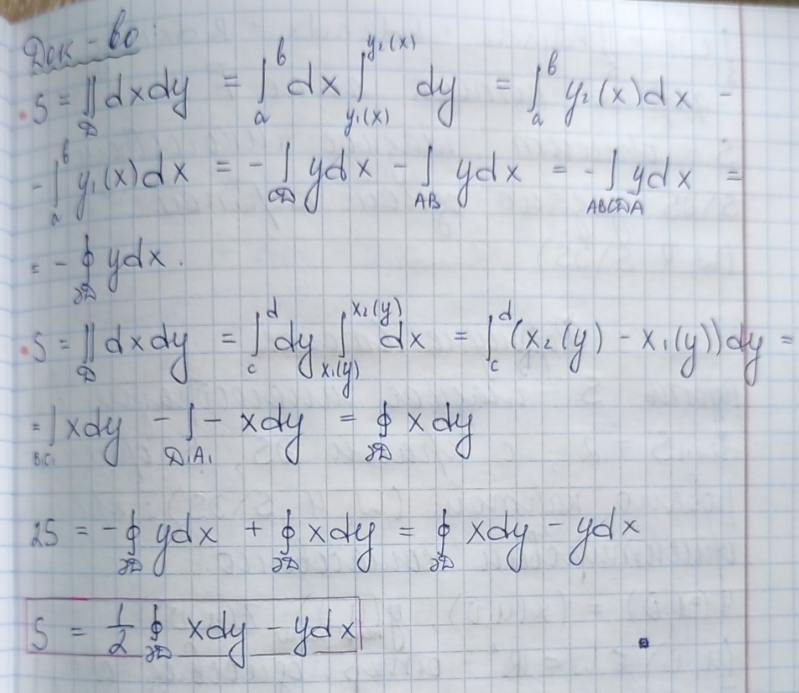 Док-во
• S = ∬_D dxdy = ∫_a^b dx ∫_{y₁(x)}^{y₂(x)} dy = ∫_a^b y₂(x)dx -
- ∫_a^b y₁(x)dx = - ∫_{CD} ydx - ∫_{AB} ydx = - ∫_{ABCDA} ydx =
= - ∮_{∂D} ydx.
• S = ∬_D dxdy = ∫_c^d dy ∫_{x₁(y)}^{x₂(y)} dx = ∫_c^d (x₂(y) - x₁(y))dy =
= ∫_{B₁C₁} xdy - ∫_{D₁A₁} - xdy = ∮_{∂D} xdy
2S = - ∮_{∂D} ydx + ∮_{∂D} xdy = ∮_{∂D} xdy - ydx
S = 1/2 ∮_{∂D} xdy - ydx